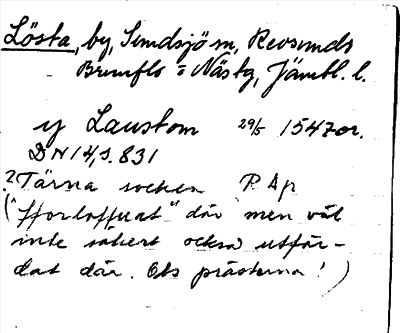 Lösta, by, Sundsjö sn, Revsunds
Brunflo o Näs tg, Jämtl. l.
y Laustom 29/5 1547 or.
DN 14, s. 831
? Tärna socken P Ap
("fforloffuat" där men väl
inte säkert också utfär-
dat där. Obs prästerna!)